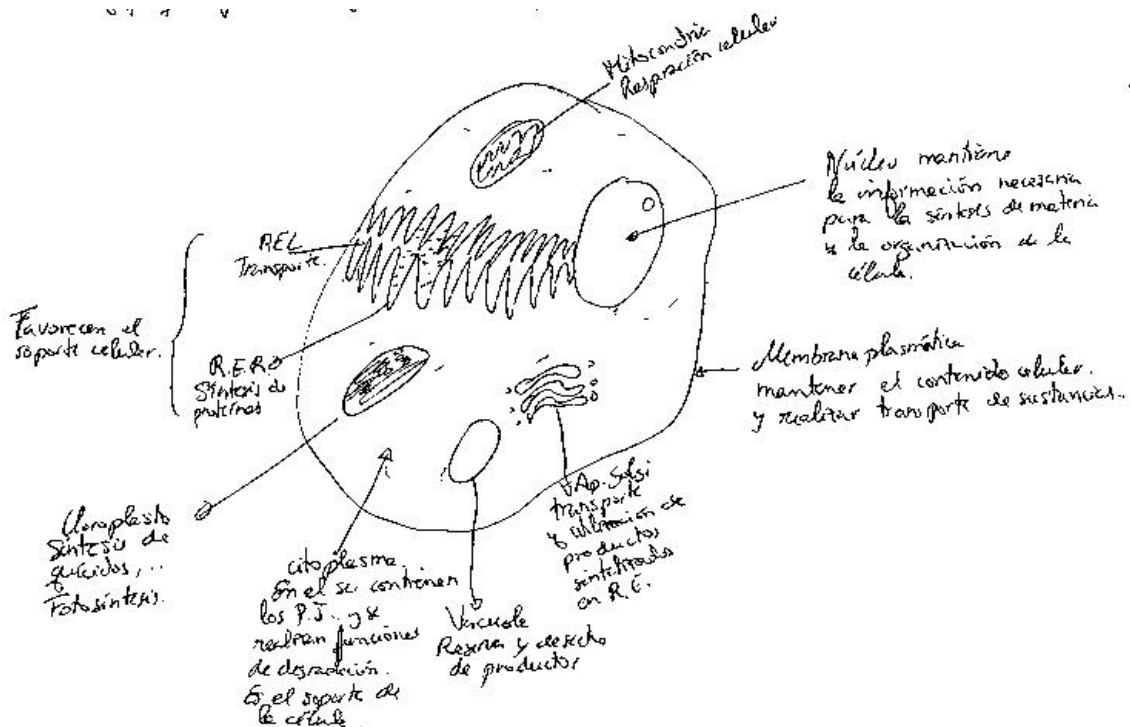 Mitocondria
Respiración celular
Núcleo mantiene
la información necesaria
para la síntesis de materia
y la organización de la
célula.
REL
Transporte.
Favorecen el
soporte celular.
R.E.R
Síntesis de
proteínas
Membrana plasmática
mantener el contenido celular.
y realizar transporte de sustancias..
Cloroplasto
Síntesis de
Fotosíntesis.
citoplasma.
En el se contienen
los y se
realizan funciones
de degradación.
Es el soporte de
la célula
Vacuola
Reserva y desecho
de productos
Ap. Golgi
transporte
y de
productos
sintetizados
en R.E.